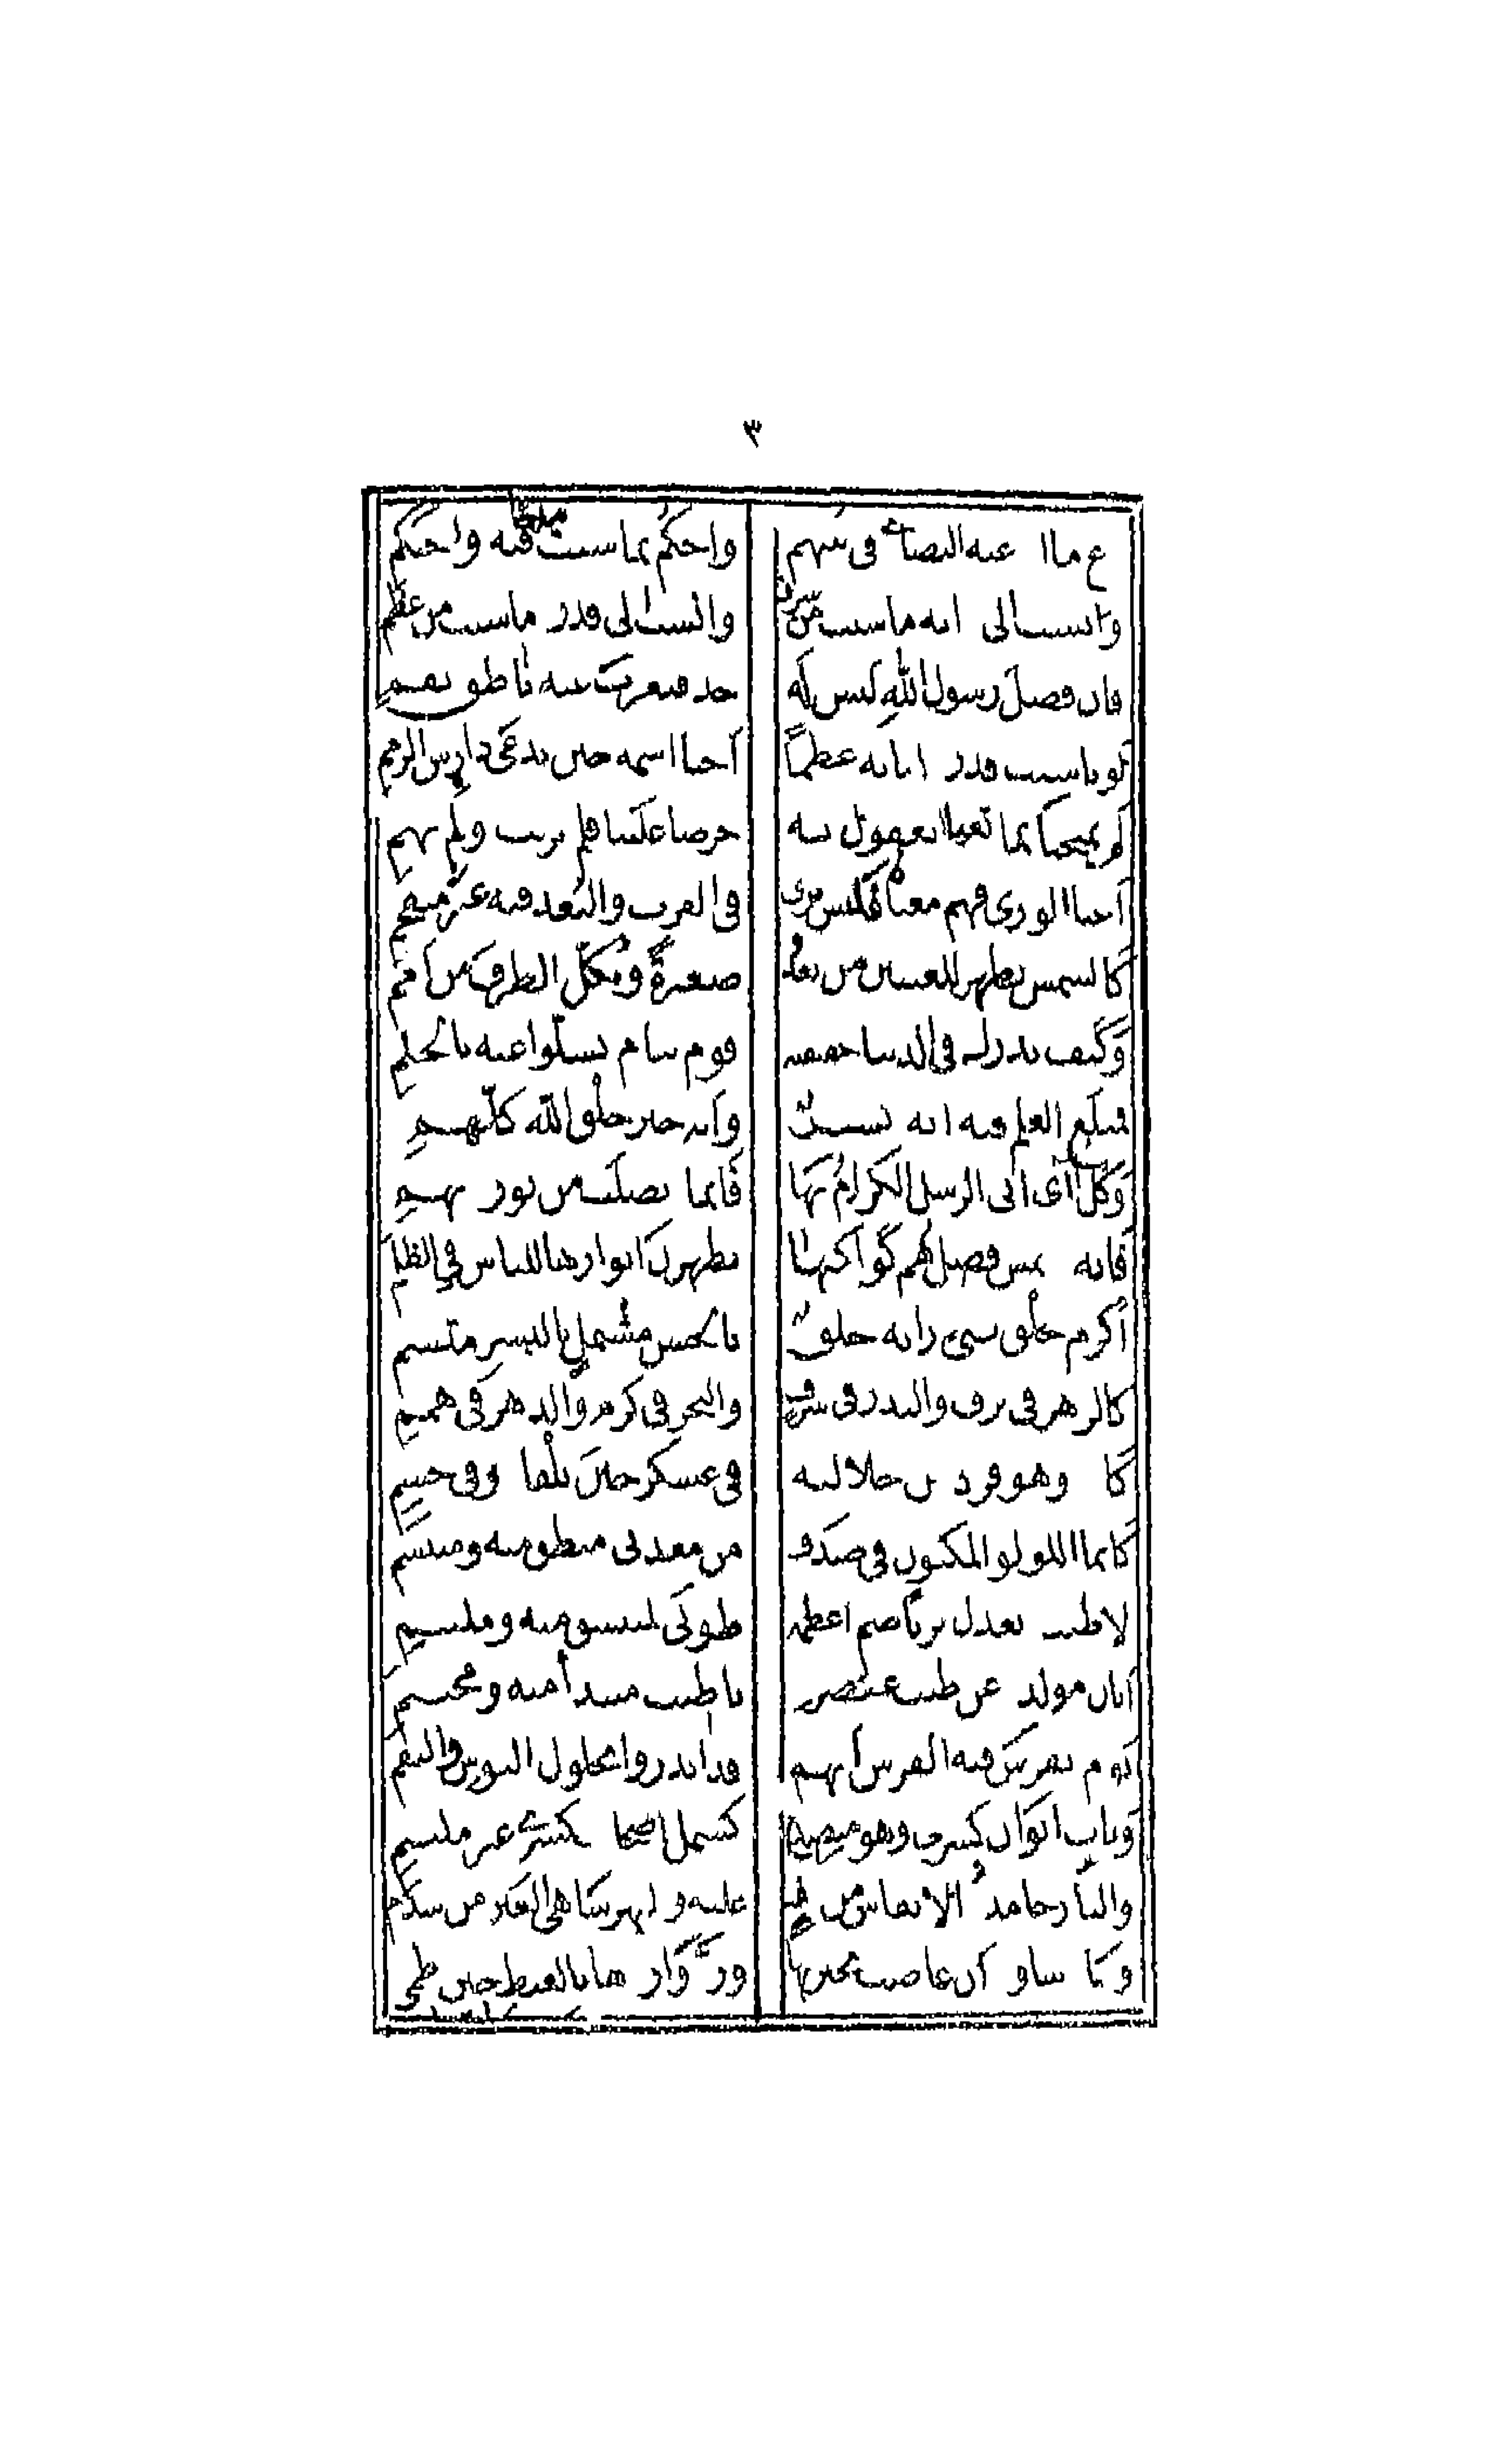 ٣
دع ما ادعته النصارى فى نبيهم واحكم بما شئت مدحا فيه واحتكم
وانسب الى ذاته ما شئت من شرف وانسب الى قدره ما شئت من عظم
فان فضل رسول الله ليس له حد فيعرب عنه ناطق بفم
لو ناسبت قدره اياته عظما احيا اسمه حين يدعى دارس الرمم
لم يمتحنا بما تعيا العقول به حرصا علينا فلم نرتب ولم نهم
اعيا الورى فهم معناه فليس يرى فى القرب والبعد فيه غير منفحم
كالشمس تظهر للعينين من بعد صغيرة وتكل الطرف من امم
وكيف يدرك فى الدنيا حقيقته قوم نيام تسلوا عنه بالحلم
فمبلغ العلم فيه انه بشر وانه خير خلق الله كلهم
وكل اى اتى الرسل الكرام بها فانما اتصلت من نوره بهم
فانه شمس فضل هم كواكبها يظهرن انوارها للناس في الظلم
اكرم بخلق نبى زانه خلق بالحسن مشتمل بالبشر متسم
كالزهر فى ترف والبدر فى شرف والبحر فى كرم والدهر فى همم
كانه وهو فرد من جلالته فى عسكر حين تلقاه وفى حشم
كانما اللولو المكنون فى صدف من معدنى منطق منه ومبتسم
لا طيب يعدل تربا ضم اعظمه طوبى لمنتشق منه وملتثم
ابان مولده عن طيب عنصره يا طيب مبتدا منه ومختتم
يوم تفرس فيه الفرس انهم قد انذروا بحلول البوس والنقم
وبات ايوان كسرى وهو منصدع كشمل اصحاب كسرى غير ملتئم
والنار خامدة الانفاس من اسف عليه والنهر ساهى العين من سدم
وساء ساوة ان غاضت بحيرتها ورد واردها بالغيظ حين ظمى